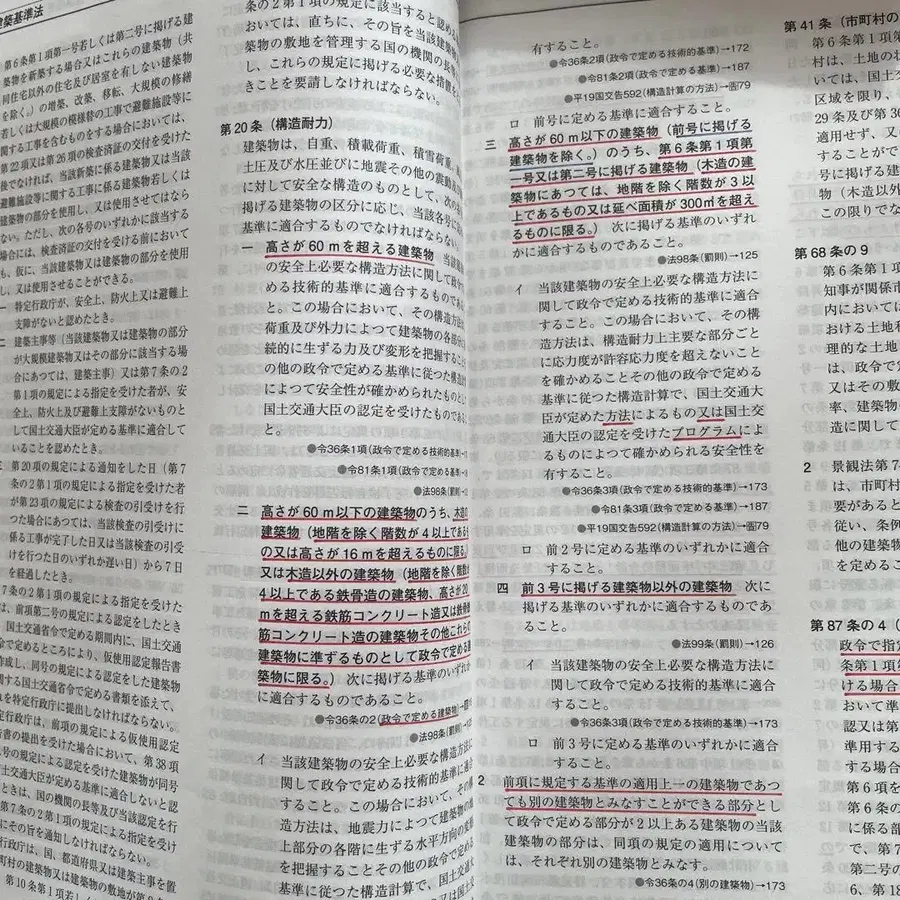 建築基準法
第6条第1項第一号若しくは第二号に掲げる建
築物を新築する場合又はこれらの建築物（共
同住宅以外の住宅及び居室を有しない建築物
を除く。）で増築、改築、移転、大規模の修繕
若しくは大規模の模様替の工事で避難施設等に
関する工事を含むものをする場合においては、
第22項又は第26項の検査済証の交付を受けた
後でなければ、当該新築に係る建築物又は当該
避難施設等に関する工事に係る建築物若しくは
建築物の部分を使用し、又は使用させてはなら
ない。ただし、次の各号のいずれかに該当する
場合には、検査済証の交付を受ける前において
も、仮に、当該建築物又は建築物の部分を使用
し、又は使用させることができる。
一 特定行政庁が、安全上、防火上又は避難上
支障がないと認めたとき。
二 建築主事等（当該建築物又は建築物の部分
が大規模建築物又はその部分に該当する場
合にあつては、建築主事）又は第7条の2
第1項の規定による指定を受けた者が、安
全上、防火上及び避難上支障がないものと
して国土交通大臣が定める基準に適合して
いることを認めたとき。
第20項の規定による通知をした日（第7
条の2第1項の規定による指定を受けた者
が第23項の規定による検査の引受けを行
つた場合にあつては、当該検査の引受けに
係る工事が完了した日又は当該検査の引受
けを行つた日のいずれか遅い日）から7日
を経過したとき。
7条の2第1項の規定による指定を受けた
前項第二号の規定による認定をしたとき
国土交通省令で定める期間内に、国土交通
で定めるところにより、仮使用認定報告書
作成し、同号の規定による認定をした建築物
関する国土交通省令で定める書類を添えて、
特定行政庁に提出しなければならない。
行政庁は、前項の規定による仮使用認定
告書の提出を受けた場合において、第38項
号の規定による認定を受けた建築物が同号
土交通大臣が定める基準に適合しないと認
ときは、国の機関の長等及び当該認定を行
7条の2第1項の規定による指定を受け
にその旨を通知しなければならない。
行政庁は、国、都道府県又は建築主事を置
町村の建築物又は建築物の敷地が第9
第10条第1項若し
条の2第1項の規定に該当すると認め
おいては、直ちに、その旨を当該建築
築物の敷地を管理する国の機関の長等
し、これらの規定に掲げる必要な措置を
きことを要請しなければならない。
第20条（構造耐力）
建築物は、自重、積載荷重、積雪荷重、
土圧及び水圧並びに地震その他の震動
に対して安全な構造のものとして、次の
掲げる建築物の区分に応じ、当該各号に
基準に適合するものでなければならない。
一 高さが60mを超える建築物 当該建
の安全上必要な構造方法に関して政令
める技術的基準に適合するものであ
と。この場合において、その構造方
荷重及び外力によつて建築物の各部分
続的に生ずる力及び変形を把握すること
の他の政令で定める基準に従つた構造計
によつて安全性が確かめられたものとし
国土交通大臣の認定を受けたものであ
と。
●令36条1項（政令で定める技術的基準
●令81条1項（政令で定める基準
●法98条（罰則）
二 高さが60m以下の建築物のうち、木造
建築物（地階を除く階数が4以上である
の又は高さが16mを超えるものに限る。
又は木造以外の建築物（地階を除く階数
4以上である鉄骨造の建築物、高さが20
mを超える鉄筋コンクリート造又は鉄骨
筋コンクリート造の建築物その他これら
建築物に準ずるものとして政令で定める
築物に限る。）次に掲げる基準のいずれか
に適合するものであること。
●令36条の2（政令で定める建築物）
●法98条（罰則）
イ 当該建築物の安全上必要な構造方法
関して政令で定める技術的基準に適
すること。この場合において、その
造方法は、地震力によつて建築物の
上部分の各階に生ずる水平方向の変
を把握することその他の政令で定め
基準に従つた構造計算で、国土交
有すること。
●令36条2項（政令で定める技術的基準）→172
●令81条2項（政令で定める基準）→187
●平19国交告592（構造計算の方法）→告79
ロ 前号に定める基準に適合すること。
三 高さが60m以下の建築物（前号に掲げる
建築物を除く。）のうち、第6条第1項第
一号又は第二号に掲げる建築物（木造の建
築物にあつては、地階を除く階数が3以
上であるもの又は延べ面積が300㎡を超え
るものに限る。） 次に掲げる基準のいずれ
かに適合するものであること。
●法98条（罰則）→125
イ 当該建築物の安全上必要な構造方法に
関して政令で定める技術的基準に適合
すること。この場合において、その構
造方法は、構造耐力上主要な部分ごと
に応力度が許容応力度を超えないこと
を確かめることその他の政令で定める
基準に従つた構造計算で、国土交通大
臣が定めた方法によるもの又は国土交
通大臣の認定を受けたプログラムによ
るものによつて確かめられる安全性を
有すること。
●令36条3項（政令で定める技術的基準）→173
●令81条3項（政令で定める基準）→187
●平19国交告592（構造計算の方法）→告79
ロ 前2号に定める基準のいずれかに適合
すること。
四 前3号に掲げる建築物以外の建築物 次に
掲げる基準のいずれかに適合するものであ
ること。
●法99条（罰則）→126
イ 当該建築物の安全上必要な構造方法に
関して政令で定める技術的基準に適合
すること。
●令36条3項（政令で定める技術的基準）→173
ロ 前3号に定める基準のいずれかに適合
すること。
2 前項に規定する基準の適用上一の建築物であつ
ても別の建築物とみなすことができる部分とし
て政令で定める部分が2以上ある建築物の当該
建築物の部分は、同項の規定の適用について
は、それぞれ別の建築物とみなす。
●令36条の4（別の建築物）→173
第41条（市町村の
第6条第1項第
村は、土地の状
いては、国土交
区域を限り、
29条及び第3
適用せず、又
することがで
る建築物につ
物（木造以外
この限りでな
第68条の9
第6条第1項
知事が関係市
内においては
おける土地利
理的な土地
は、政令で
又はその敷
率、建築物
造に関して
2 景観法第7
は、市町村
要があると
従い、条例
他の建築物
を定めるこ
第87条の4（
政令で指定
条第1項第
ける場合
おいて準
認又は第
準用する
する場合
第6項を
第6条の
に係る部
で、第7
第二号の
6、第18